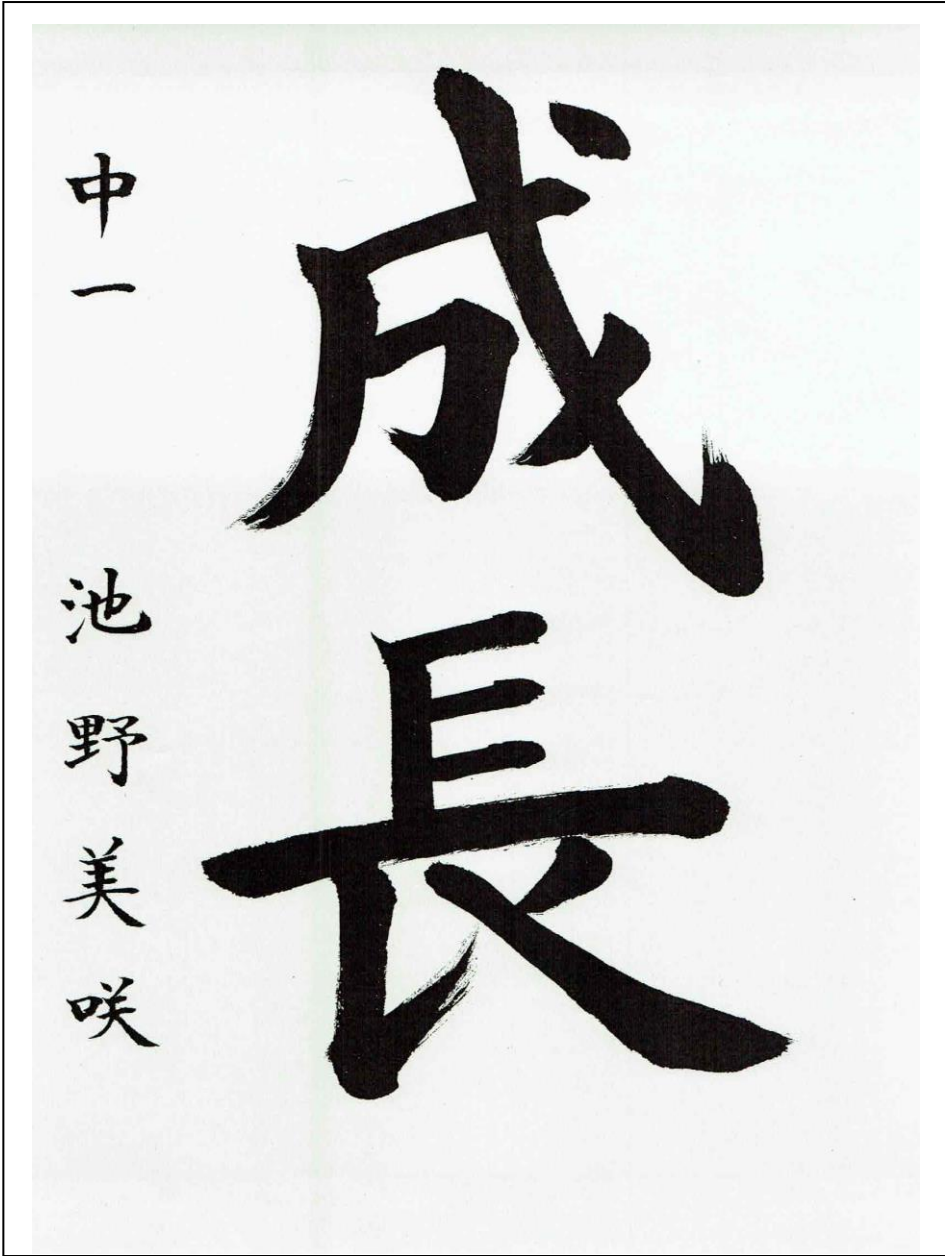 成長
中一 池野美咲